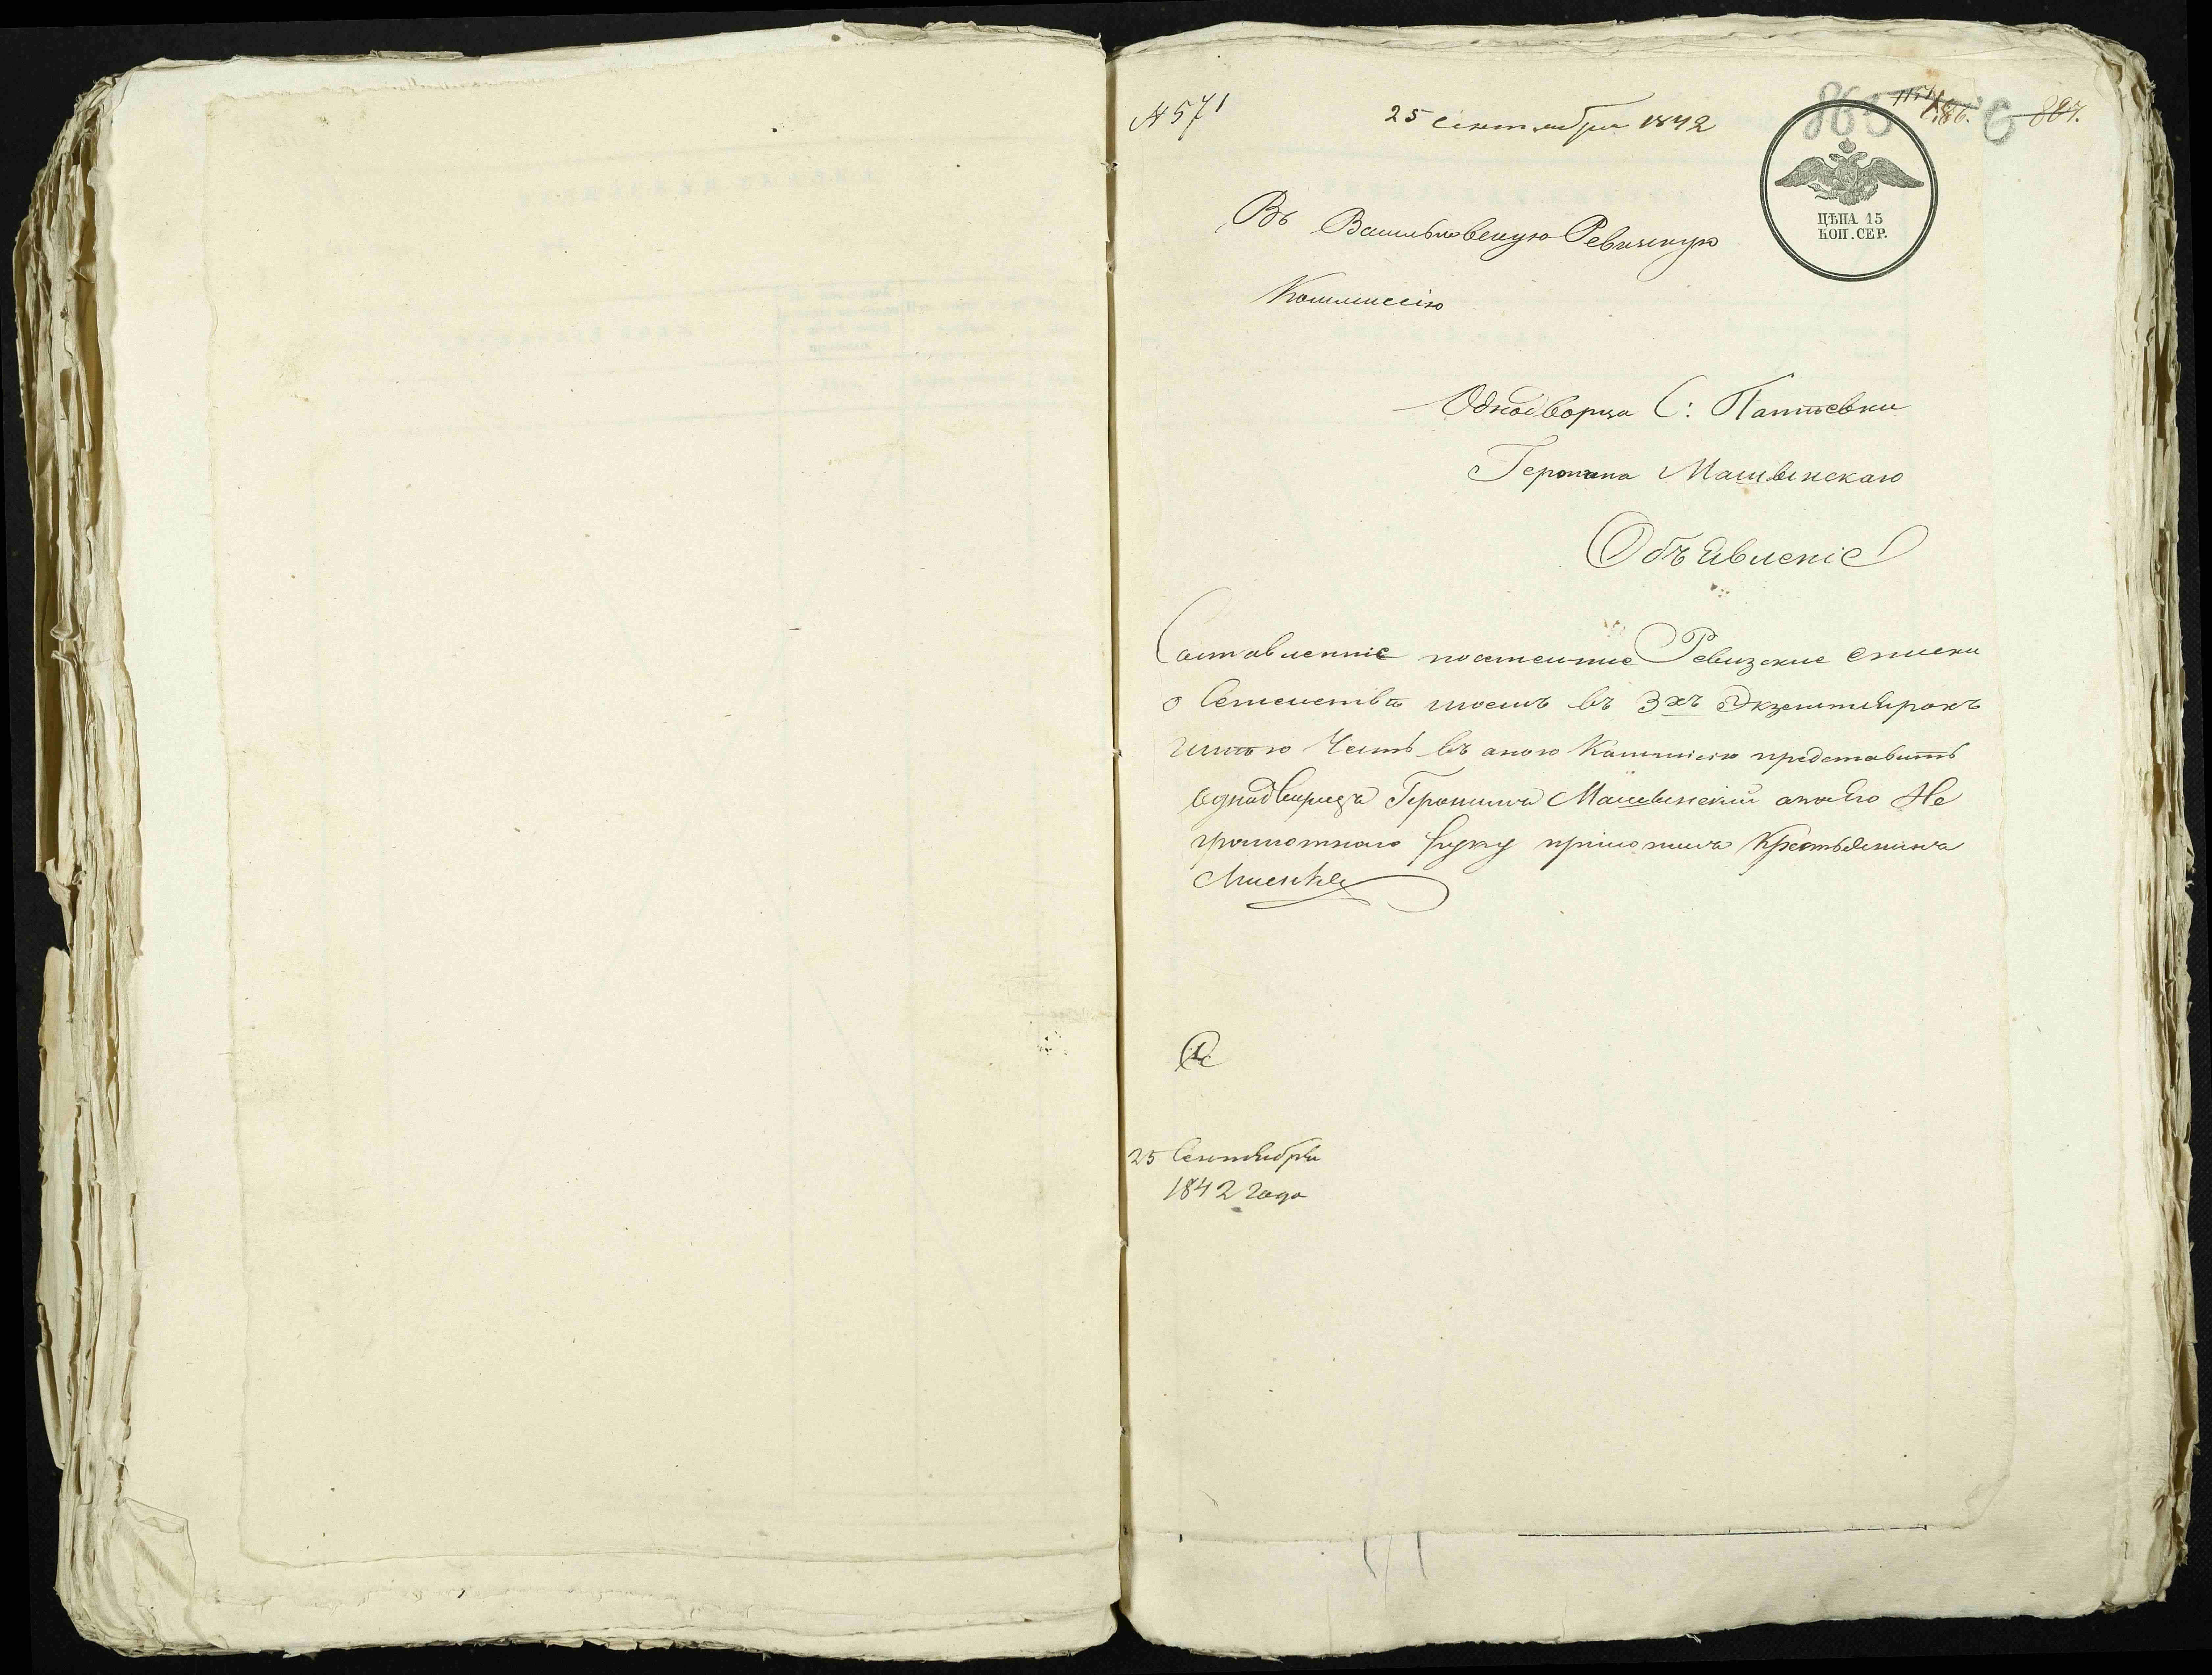 № 571
25 Сентября 1842
865
6
807.
ЦѢНА 15
КОП. СЕР.
Въ Васильковскую Ревизкую
Коммиссію
Однодворца С: Паптевки
Геронима Машвинскаго
Объявленіе
Составленніе посемейние Ревизские списки
о Семействѣ моемъ въ 3хъ Экземплярахъ
имѣю Честь въ оною Коммисію представить
Однодворецъ Геронимъ Машвинский а по Его Не
грамотного руку приложилъ Крестьянинъ
25 Сентября
1842 года